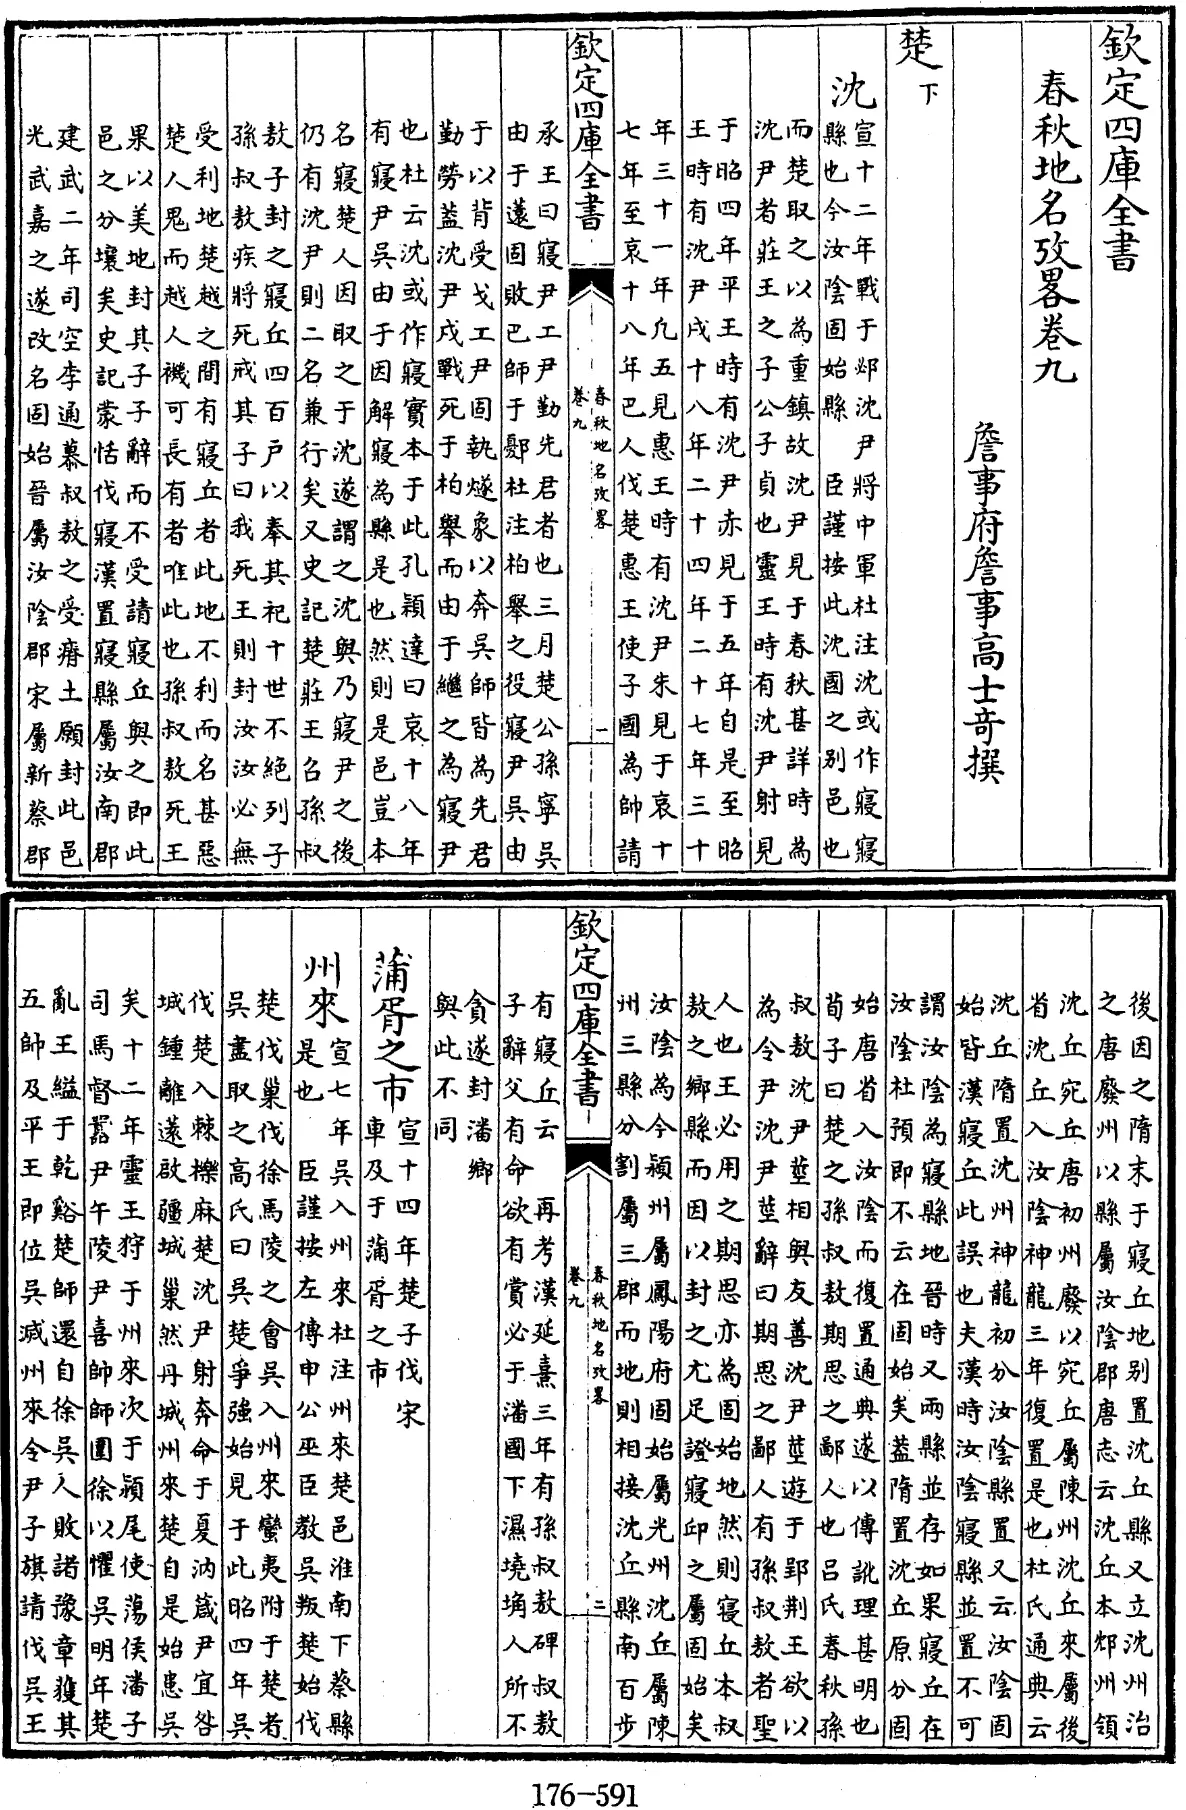 欽定四庫全書
春秋地名攷畧卷九
詹事府詹事高士竒撰
楚下
沈
宣十二年戰于邲沈尹將中軍杜注沈或作寢寢
縣也今汝陰固始縣 臣謹按此沈國之别邑也
而楚取之以為重鎮故沈尹見于春秋甚詳時為
沈尹者莊王之子公子貞也靈王時有沈尹射見
于昭四年平王時有沈尹赤見于五年自是至昭
王時有沈尹戌十八年二十四年二十七年三十
年三十一年凡五見惠王時有沈尹朱見于哀十
七年至哀十八年巴人伐楚惠王使子國為帥請
欽定四庫全書
春秋地名攷畧
卷九
一
承王曰寢尹工尹勤先君者也三月楚公孫寧吳
由于薳固敗巴師于鄾杜注柏舉之役寢尹吳由
于以背受戈工尹固執燧象以奔吳師皆為先君
勤勞葢沈尹戌戰死于柏舉而由于繼之為寢尹
也杜云沈或作寢實本于此孔穎達曰哀十八年
有寢尹吳由于因解寢為縣是也然則是邑豈本
名寢楚人因取之于沈遂謂之沈與乃寢尹之後
仍有沈尹則二名兼行矣又史記楚莊王召孫叔
敖子封之寢丘四百户以奉其祀十世不絶列子
孫叔敖疾將死戒其子曰我死王則封汝汝必無
受利地楚越之間有寢丘者此地不利而名甚惡
楚人鬼而越人禨可長有者唯此也孫叔敖死王
果以美地封其子子辭而不受請寢丘與之即此
邑之分壤矣史記蒙恬伐寢漢置寢縣屬汝南郡
建武二年司空李通慕叔敖之受瘠土願封此邑
光武嘉之遂改名固始晉屬汝陰郡宋屬新蔡郡
後因之隋末于寢丘地别置沈丘縣又立沈州治
之唐廢州以縣屬汝陰郡唐志云沈丘本郮州領
沈丘宛丘唐初州廢以宛丘屬陳州沈丘來屬後
省沈丘入汝陰神龍三年復置是也杜氏通典云
沈丘隋置沈州神龍初分汝陰縣置又云汝陰固
始皆漢寢丘此誤也夫漢時汝陰寢縣並置不可
謂汝陰為寢縣地晉時又兩縣並存如果寢丘在
汝陰杜預即不云在固始矣葢隋置沈丘原分固
始唐省入汝陰而復置通典遂以傳訛理甚明也
荀子曰楚之孫叔敖期思之鄙人也吕氏春秋孫
叔敖沈尹莖相與友善沈尹莖遊于郢荆王欲以
為令尹沈尹莖辭曰期思之鄙人有孫叔敖者聖
人也王必用之期思亦為固始地然則寢丘本叔
敖之鄉縣而因以封之尤足證寢卭之屬固始矣
汝陰為今潁州屬鳳陽府固始屬光州沈丘屬陳
州三縣分割屬三郡而地則相接沈丘縣南百步
欽定四庫全書
春秋地名攷畧
卷九
二
有寢丘云 再考漢延熹三年有孫叔敖碑叔敖
子辭父有命欲有賞必于潘國下濕墝埆人所不
貪遂封潘鄉
與此不同
蒲胥之市
宣十四年楚子伐宋
車及于蒲胥之市
州來
宣七年吳入州來杜注州來楚邑淮南下蔡縣
是也 臣謹按左傳申公巫臣教吳叛楚始伐
楚伐巢伐徐馬陵之會吳入州來蠻夷附于楚者
吳盡取之高氏曰吳楚爭強始見于此昭四年吳
伐楚入棘櫟麻楚沈尹射奔命于夏汭箴尹宜咎
城鍾離薳啟疆城巢然丹城州來楚自是始患吳
矣十二年靈王狩于州來次于潁尾使蕩侯潘子
司馬督囂尹午陵尹喜帥師圍徐以懼吳明年楚
亂王縊于乾谿楚師還自徐吳人敗諸豫章獲其
五帥及平王即位吳滅州來令尹子旗請伐吳王
176-591